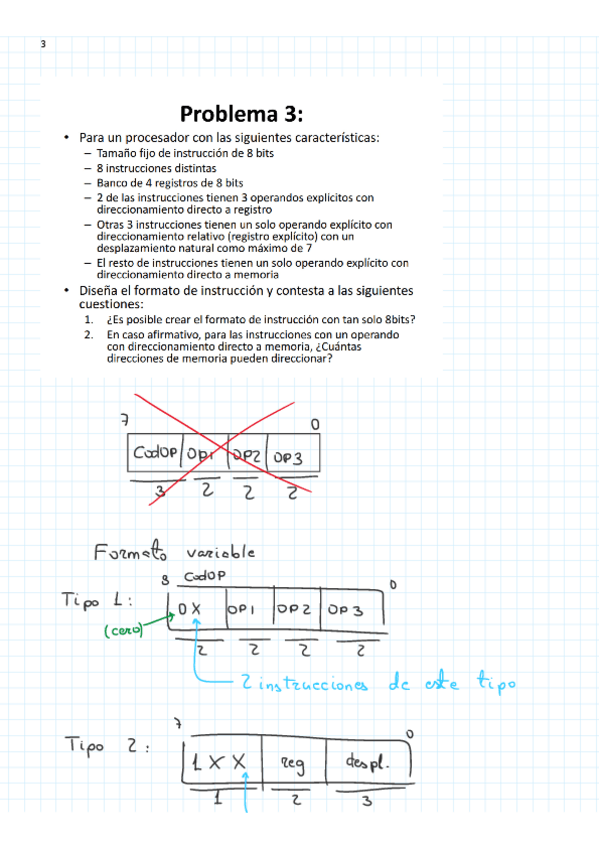 3
Problema 3:
• Para un procesador con las siguientes características:
– Tamaño fijo de instrucción de 8 bits
– 8 instrucciones distintas
– Banco de 4 registros de 8 bits
– 2 de las instrucciones tienen 3 operandos explicitos con
direccionamiento directo a registro
– Otras 3 instrucciones tienen un solo operando explícito con
direccionamiento relativo (registro explícito) con un
desplazamiento natural como máximo de 7
– El resto de instrucciones tienen un solo operando explícito con
direccionamiento directo a memoria
• Diseña el formato de instrucción y contesta a las siguientes
cuestiones:
1. ¿Es posible crear el formato de instrucción con tan solo 8bits?
2. En caso afirmativo, para las instrucciones con un operando
con direccionamiento directo a memoria, ¿Cuántas
direcciones de memoria pueden direccionar?
7 0
CodOP OP1 OP2 OP3
3 2 2 2
Formato variable
8 CodOP 0
Tipo 1: 0X OP1 OP2 OP3
(cero)
2 2 2 2
2 instrucciones de este tipo
7 0
Tipo 2: 1XX reg despl.
1 2 3